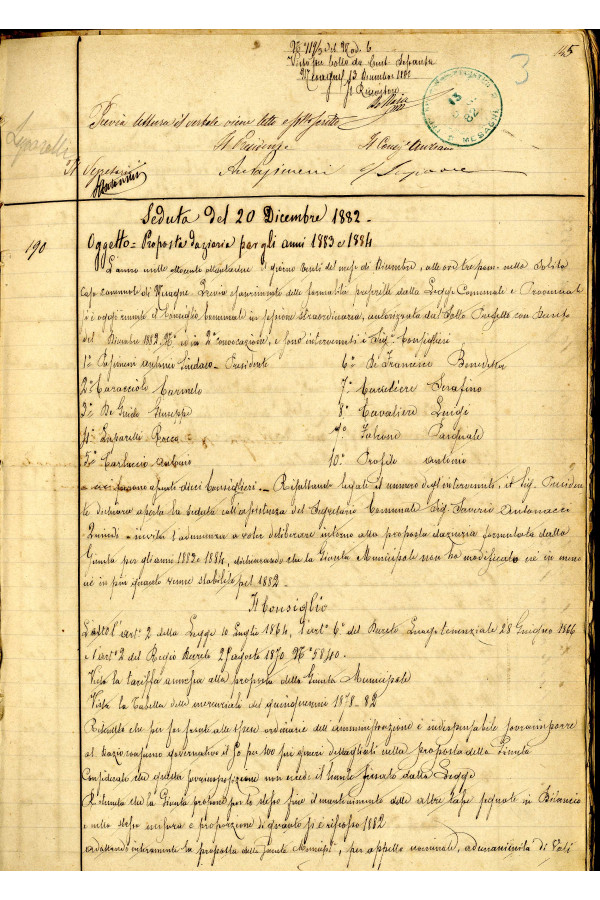 145
3
N° 119/3 del Mod. 6
Visto per bollo da Cent. Sessanta
Mesagne 13 Dicembre 1882
Il Ricevitore
13
82
MESAGNE
Previa lettura il verbale viene
Il Presidente Il Cons. Anziano
Il Segretario
Antonucci
Seduta del 20 Dicembre 1882 -
190
Oggetto = Proposta daziaria per gli anni 1883 e 1884
L'anno mille ottocento ottantadue il giorno venti del mese di Dicembre, alle ore tre pom. nella solita
Casa comunale di Mesagne. Previo esaurimento delle formalità prescritte dalla Legge Comunale e Provinciale
si è oggi riunito il Consiglio Comunale in sessione straordinaria, autorizzata dal Sotto Prefetto con
del Dicembre 1882, N° in 2ª convocazione, e sono intervenuti i Sig.i Consiglieri
1° Antonio Sindaco - Presidente
6° De Francesco Benedetto
2° Caracciolo Carmelo
7° Serafino
3° De Guido Giuseppe
8° Cavaliere Luigi
4° Luparelli Rocco
9° Falcone Pasquale
5° Carluccio Antonio
10° Profilo Antonio
dieci Consiglieri. - Risultando legale il numero degl'intervenuti, il Sig. Presidente
dichiara aperta la seduta coll'assistenza del Segretario Comunale Sig. Saverio Antonucci
Quindi invita l'adunanza a voler deliberare intorno alla proposta daziaria formulata dalla
Giunta per gli anni 1883 e 1884, dichiarando che la Giunta Municipale non ha modificato nè in meno
nè in più quanto venne stabilito pel 1882 -
Il Consiglio
l'art.° 2 della Legge 10 Luglio 1864, l'art.° 6° del Decreto Luogotenenziale 28 Giugno 1866
e l'art.° 2 del Regio Decreto 25 agosto 1870 N° 5840 -
Vista la tariffa annessa alla proposta della Giunta Municipale
Vista la Tabella delle mercuriali del quinquennio 1878-82
Ritenuto che per far fronte alle spese ordinarie dell'amministrazione è indispensabile sovraimporre
al dazio consumo governativo il 50 per 100 sui generi dettagliati nella proposta della Giunta
Considerato che questa sovraimposizione non eccede il limite fissato dalla Legge
Ritenuto che la Giunta propone per lo stesso fine il mantenimento delle altre tasse segnate in Bilancio
e nella stessa misura e proporzione di quanto si è riscosso 1882
adottando interamente la proposta della Giunta Municip.le, per appello nominale, ad unanimità di Voti